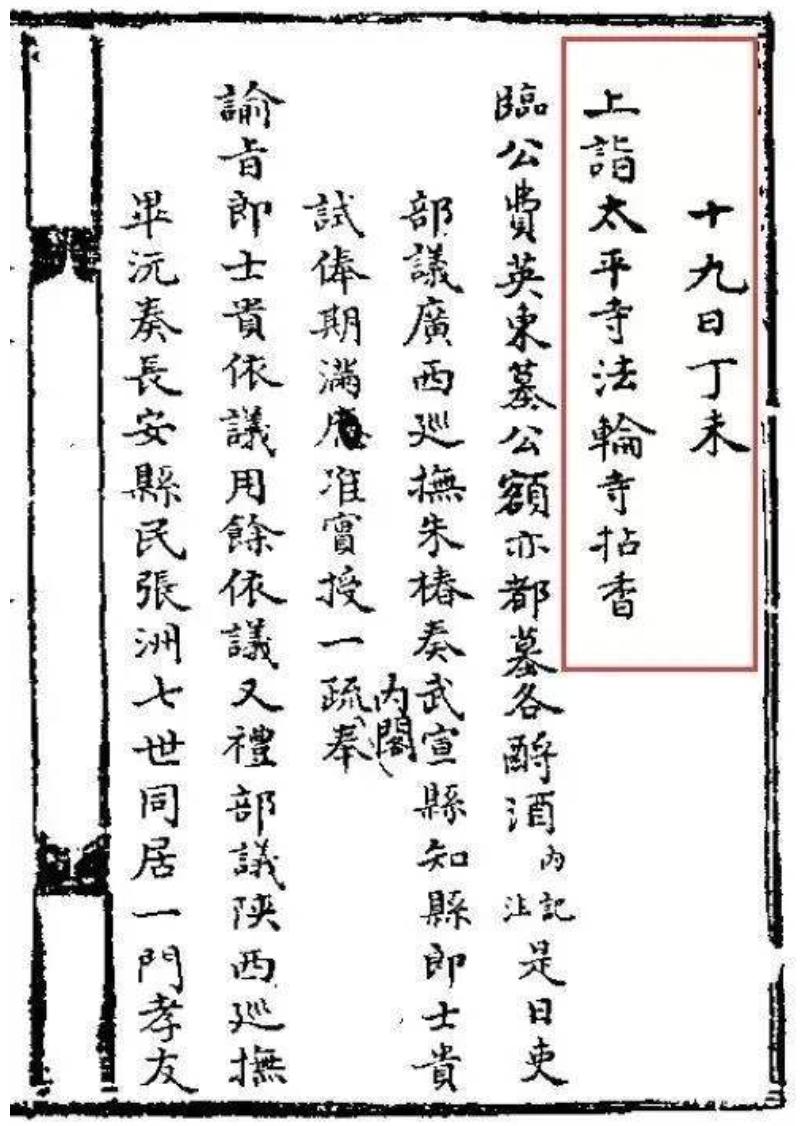 十九日丁未
上詣太平寺法輪寺拈香
臨公費英東墓公額亦都墓各酹酒內記注是日吏
部議廣西巡撫朱椿奏武宣縣知縣郎士貴
試俸期滿應准實授一疏內閣奉
諭旨郎士貴依議用餘依議又禮部議陝西巡撫
畢沅奏長安縣民張洲七世同居一門孝友